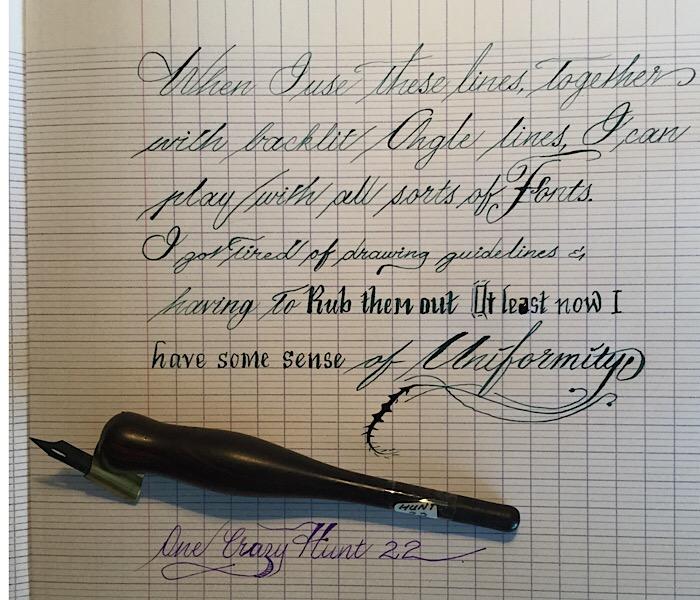 When I use these lines, together
with backlit Angle lines, I can
play with all sorts of Fonts.
I got Tired of drawing guidelines &
having To Rub them out At least now I
have some sense of Uniformity
HUNT
22
One Crazy Hunt 22